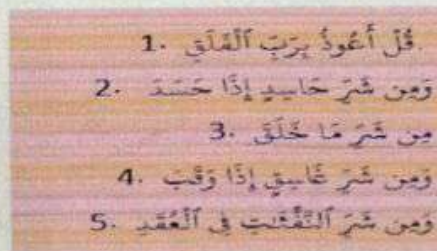 1. قُلْ أَعُوذُ بِرَبِّ ٱلْفَلَقِ
2. وَمِن شَرِّ حَاسِدٍ إِذَا حَسَدَ
3. مِن شَرِّ مَا خَلَقَ
4. وَمِن شَرِّ غَاسِقٍ إِذَا وَقَبَ
5. وَمِن شَرِّ ٱلنَّفَّٰثَٰتِ فِى ٱلْعُقَدِ